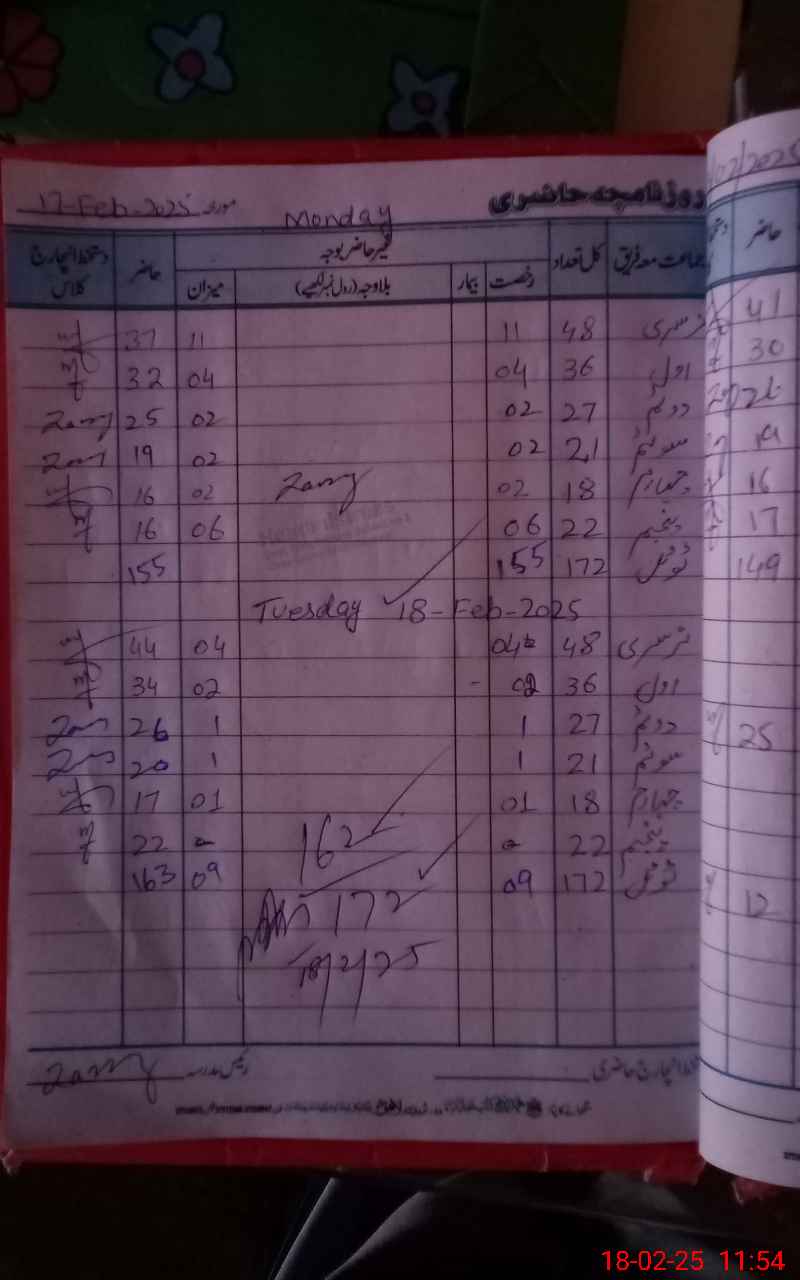 روزنامچہ حاضری Monday مورخہ 17-Feb-2025
جماعت معہ فریق کل تعداد غیر حاضر بوجہ حاضر دستخط انچارج کلاس
رخصت بیمار بلاوجہ (رول نمبر لکھیے) میزان
نرسری 48 11 11 37
اول 36 04 04 32
دوئم 27 02 02 25
سوئم 21 02 02 19
چہارم 18 02 02 16
پنجم 22 06 06 16
ٹوٹل 172 155 155
Tuesday 18-Feb-2025
نرسری 48 04 04 44
اول 36 02 - 02 34
دوئم 27 1 1 26
سوئم 21 1 1 20
چہارم 18 01 01 17
پنجم 22 - - 22
ٹوٹل 172 09 09 163
162
172
18/2/25
دستخط انچارج حاضری رئیس مدرسہ
/02/2025
حاضر
41
30
26
19
16
17
149
25
12
18-02-25 11:54